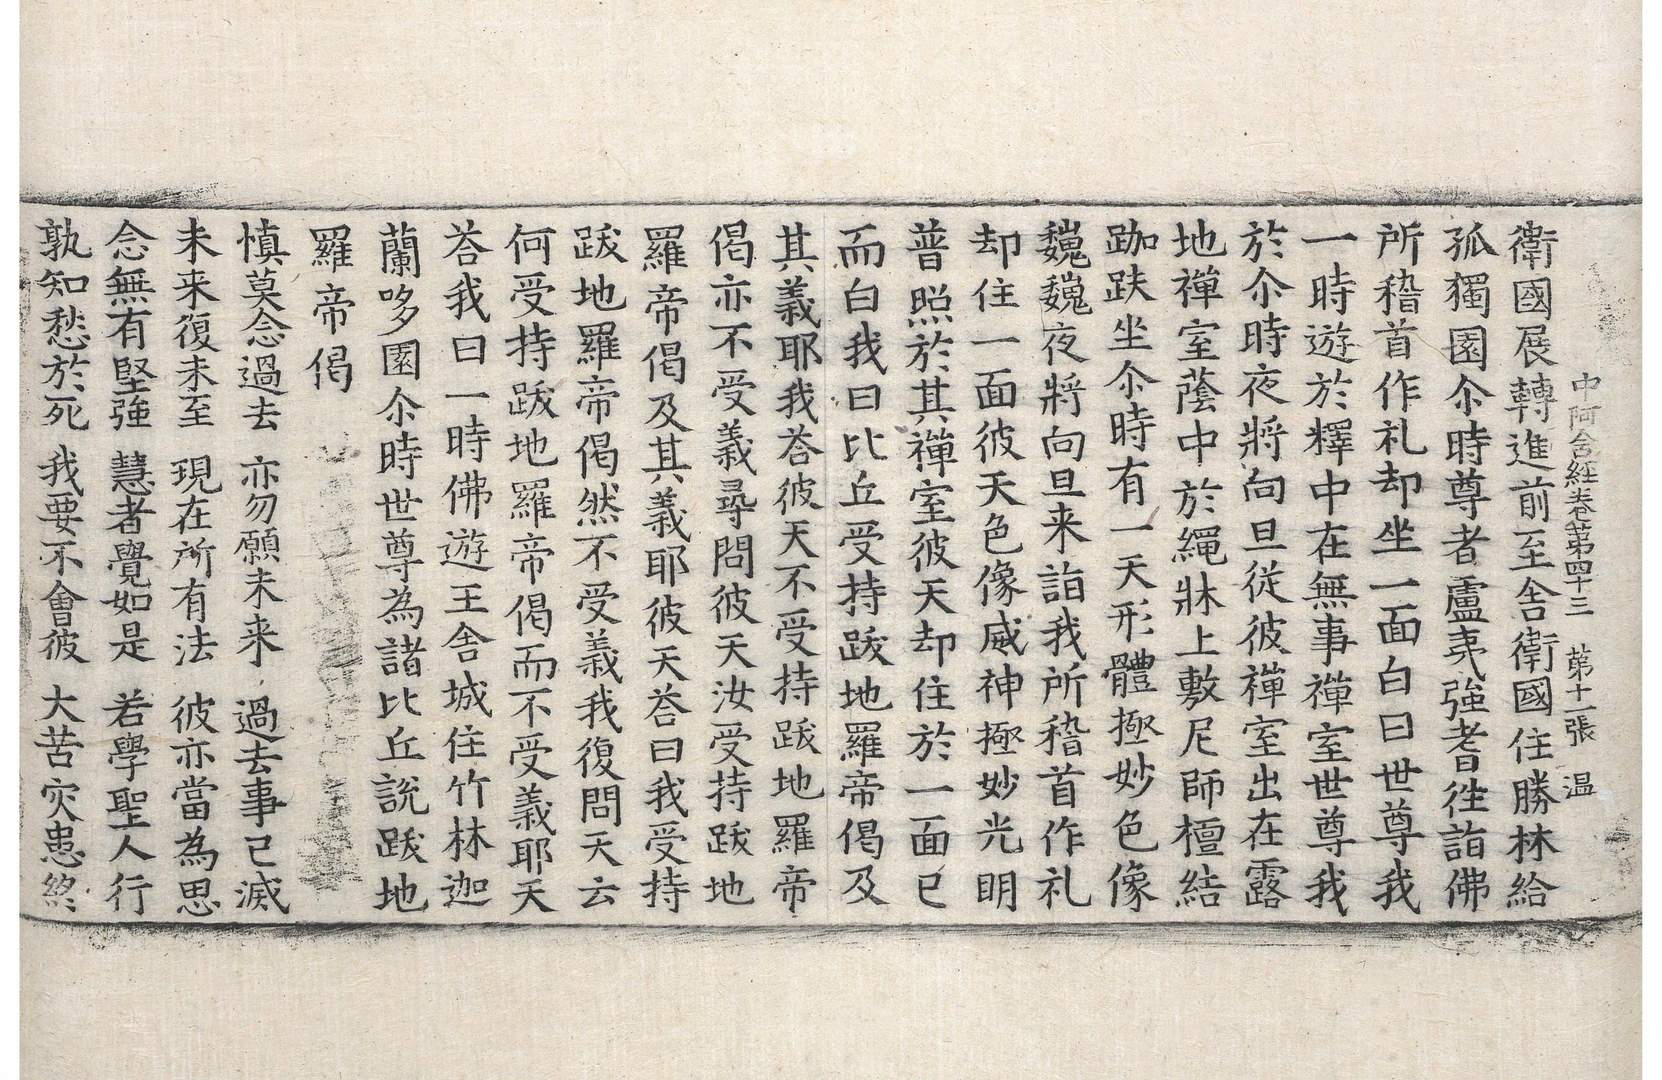 中阿含經卷第四十三　第十一張　温
衛國展轉進前至舍衛國住勝林給
孤獨園尒時尊者盧夷強耆徃詣佛
所稽首作礼却坐一面白曰世尊我
一時遊於釋中在無事禪室世尊我
於尒時夜將向旦從彼禪室出在露
地禪室蔭中於繩牀上敷尼師檀結
跏趺坐尒時有一天形體極妙色像
巍巍夜將向旦来詣我所稽首作礼
却住一面彼天色像威神極妙光明
普照於其禪室彼天却住於一面已
而白我曰比丘受持跋地羅帝偈及
其義耶我荅彼天不受持跋地羅帝
偈亦不受義尋問彼天汝受持跋地
羅帝偈及其義耶彼天荅曰我受持
跋地羅帝偈然不受義我復問天云
何受持跋地羅帝偈而不受義耶天
荅我曰一時佛遊王舍城住竹林迦
蘭哆園尒時世尊為諸比丘說跋地
羅帝偈
慎莫念過去　亦勿願未来　過去事已滅
未来復未至　現在所有法　彼亦當為思
念無有堅強　慧者覺如是　若學聖人行
孰知愁於死　我要不會彼　大苦灾患終